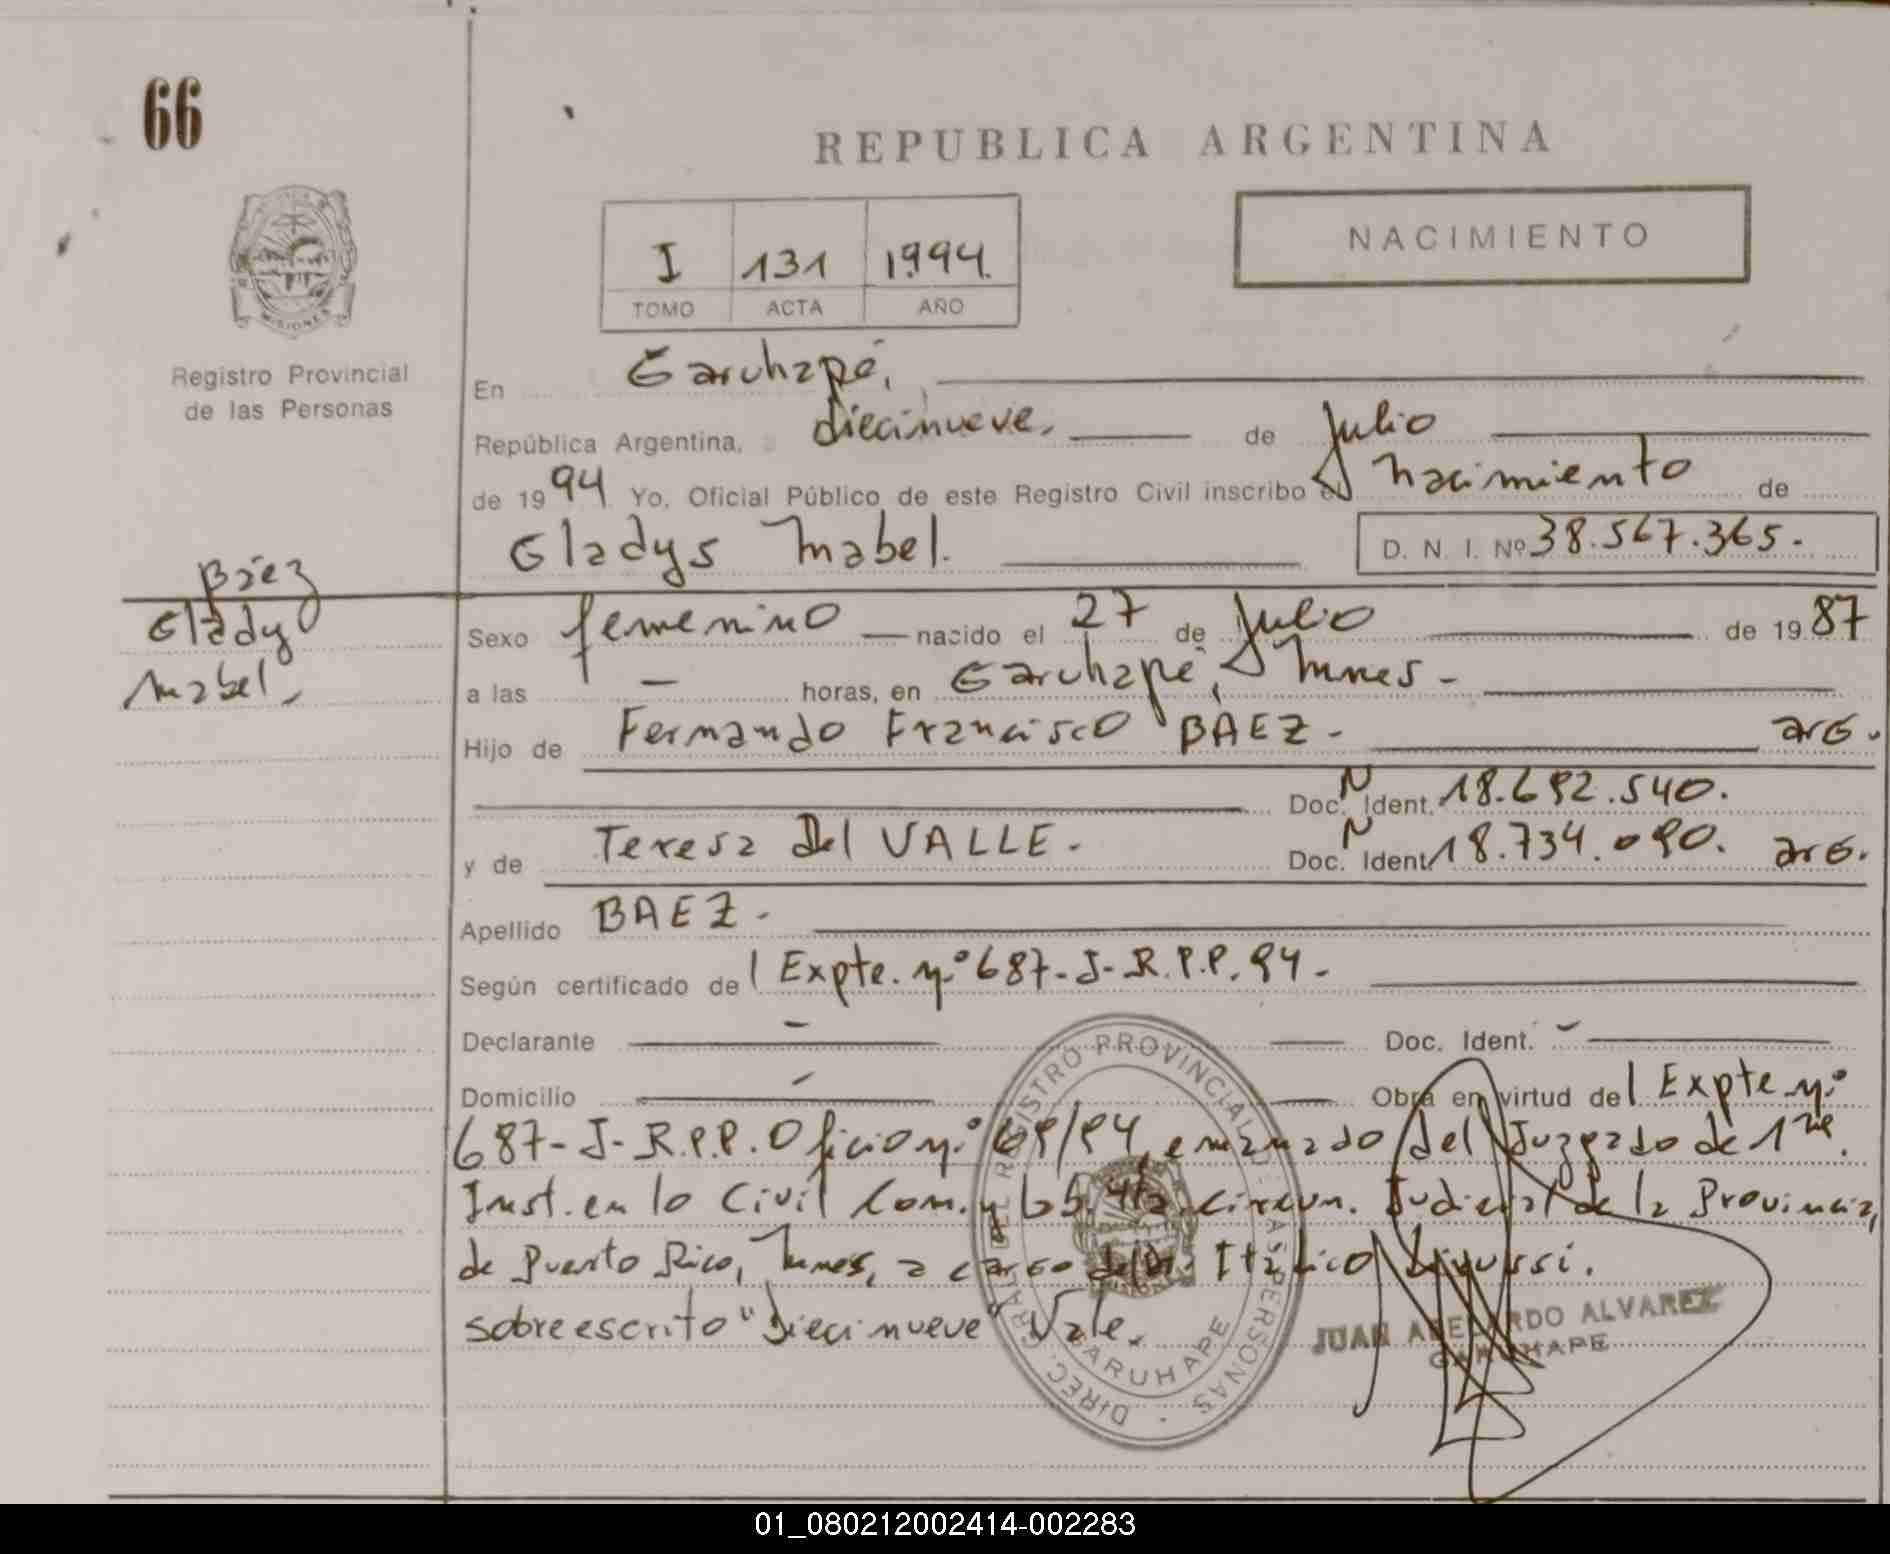 66
REPUBLICA ARGENTINA
NACIMIENTO
I 131 1994.
TOMO ACTA AÑO
MISIONES
Registro Provincial
de las Personas
En Garuhapé,
República Argentina, diecinueve. de Julio
de 1994 Yo, Oficial Público de este Registro Civil inscribo el nacimiento de
Gladys Mabel. D. N. I. Nº 38.567.365.
Báez
Gladys
Mabel.
Sexo femenino nacido el 27 de Julio de 1987
a las - horas, en Garuhapé, Mnes.
Hijo de Fernando Francisco BÁEZ. arg.
Doc. N Ident. 18.692.540.
y de Teresa Del VALLE. Doc. N Ident. 18.734.090. arg.
Apellido BAEZ.
Según certificado del Expte. nº 687-J-R.P.P. 94.
Declarante - Doc. Ident. -
Domicilio - Obra en virtud del Expte. nº
687-J-R.P.P. Oficio nº 69/94, emanado del Juzgado de 1ra.
Inst. en lo Civil Com. y Lab. 4ta. circun. Judicial de la Provincia,
de Puerto Rico, Mnes, a cargo del Dr. Itálico
sobreescrito "diecinueve" Vale.
DIREC. GRAL. DEL REGISTRO PROVINCIAL DE LAS PERSONAS
GARUHAPE
JUAN ABELARDO ALVAREZ
GARUHAPE
01_080212002414-002283